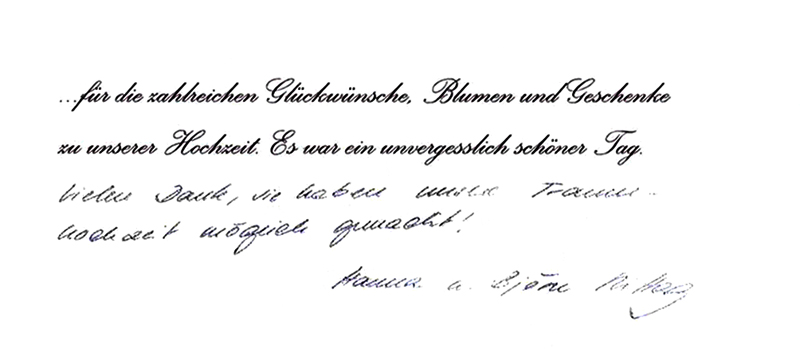 ...für die zahlreichen Glückwünsche, Blumen und Geschenke
zu unserer Hochzeit. Es war ein unvergesslich schöner Tag.
Vielen Dank, sie haben unsere Traum-
hochzeit möglich gemacht!
Hanna u. Björn